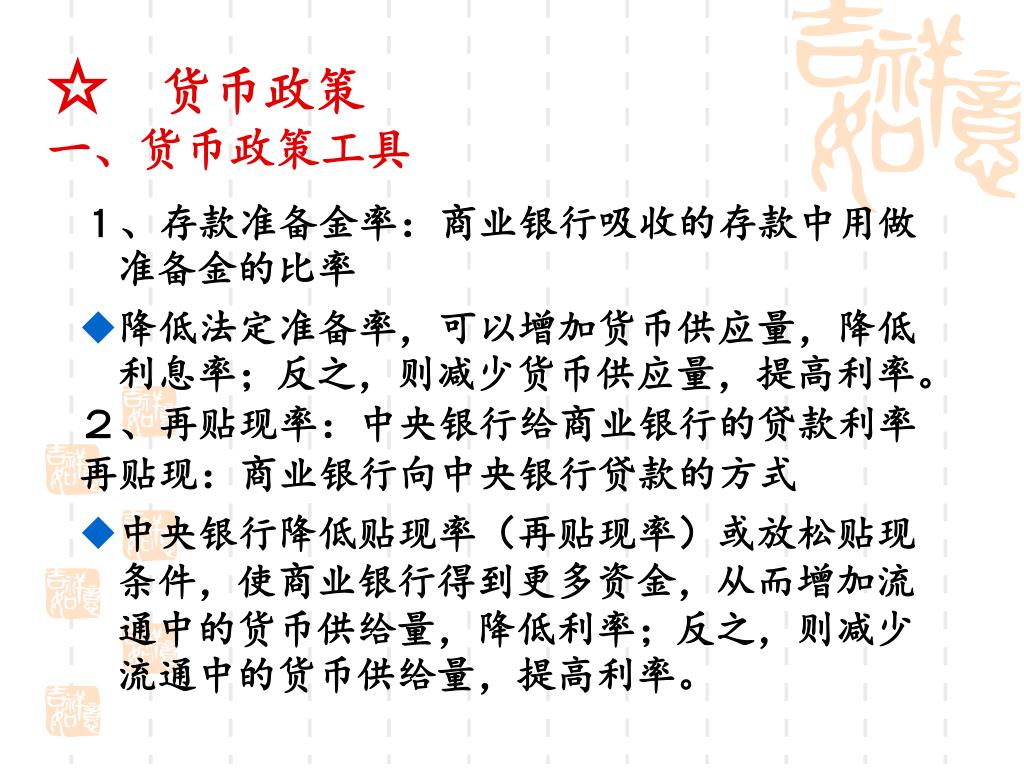 ☆ 货币政策
一、货币政策工具
1、存款准备金率：商业银行吸收的存款中用做
准备金的比率
◆降低法定准备率，可以增加货币供应量，降低
利息率；反之，则减少货币供应量，提高利率。
2、再贴现率：中央银行给商业银行的贷款利率
再贴现：商业银行向中央银行贷款的方式
◆中央银行降低贴现率（再贴现率）或放松贴现
条件，使商业银行得到更多资金，从而增加流
通中的货币供给量，降低利率；反之，则减少
流通中的货币供给量，提高利率。
吉祥如意